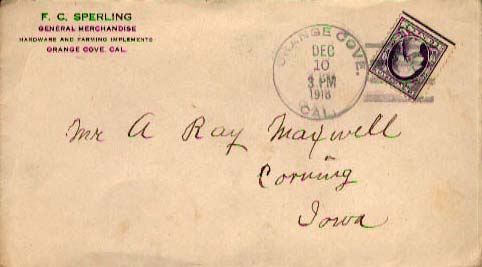 F. C. SPERLING
GENERAL MERCHANDISE
HARDWARE AND FARMING IMPLEMENTS
ORANGE COVE, CAL.
ORANGE COVE.
DEC
10
3 PM
1918
CAL.
Mr A Ray Maxwell
Corning
Iowa